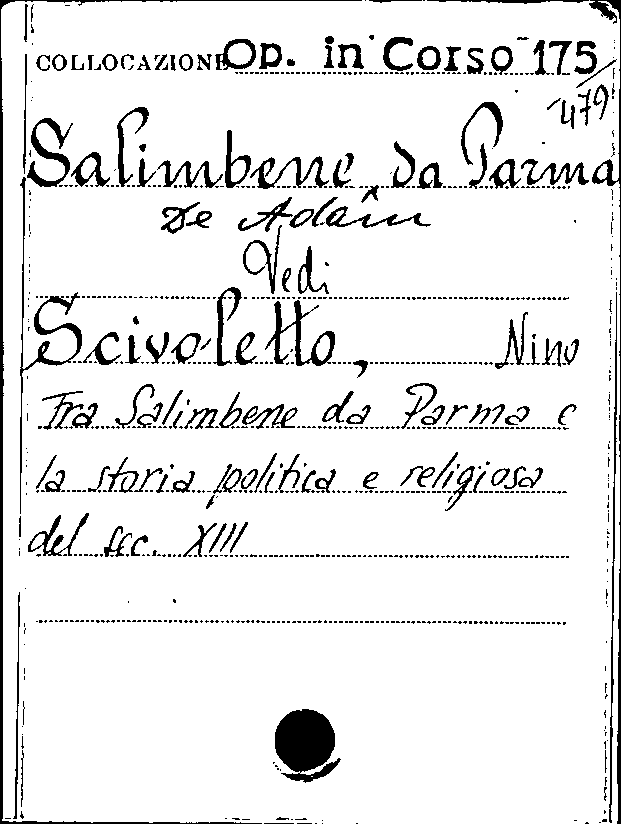 COLLOCAZIONE Op. in Corso 175
/479
Salimbene da Parma
De Adam
Vedi
Scivoletto, Nino
Fra Salimbene da Parma e
la storia politica e religiosa
del sec. XIII